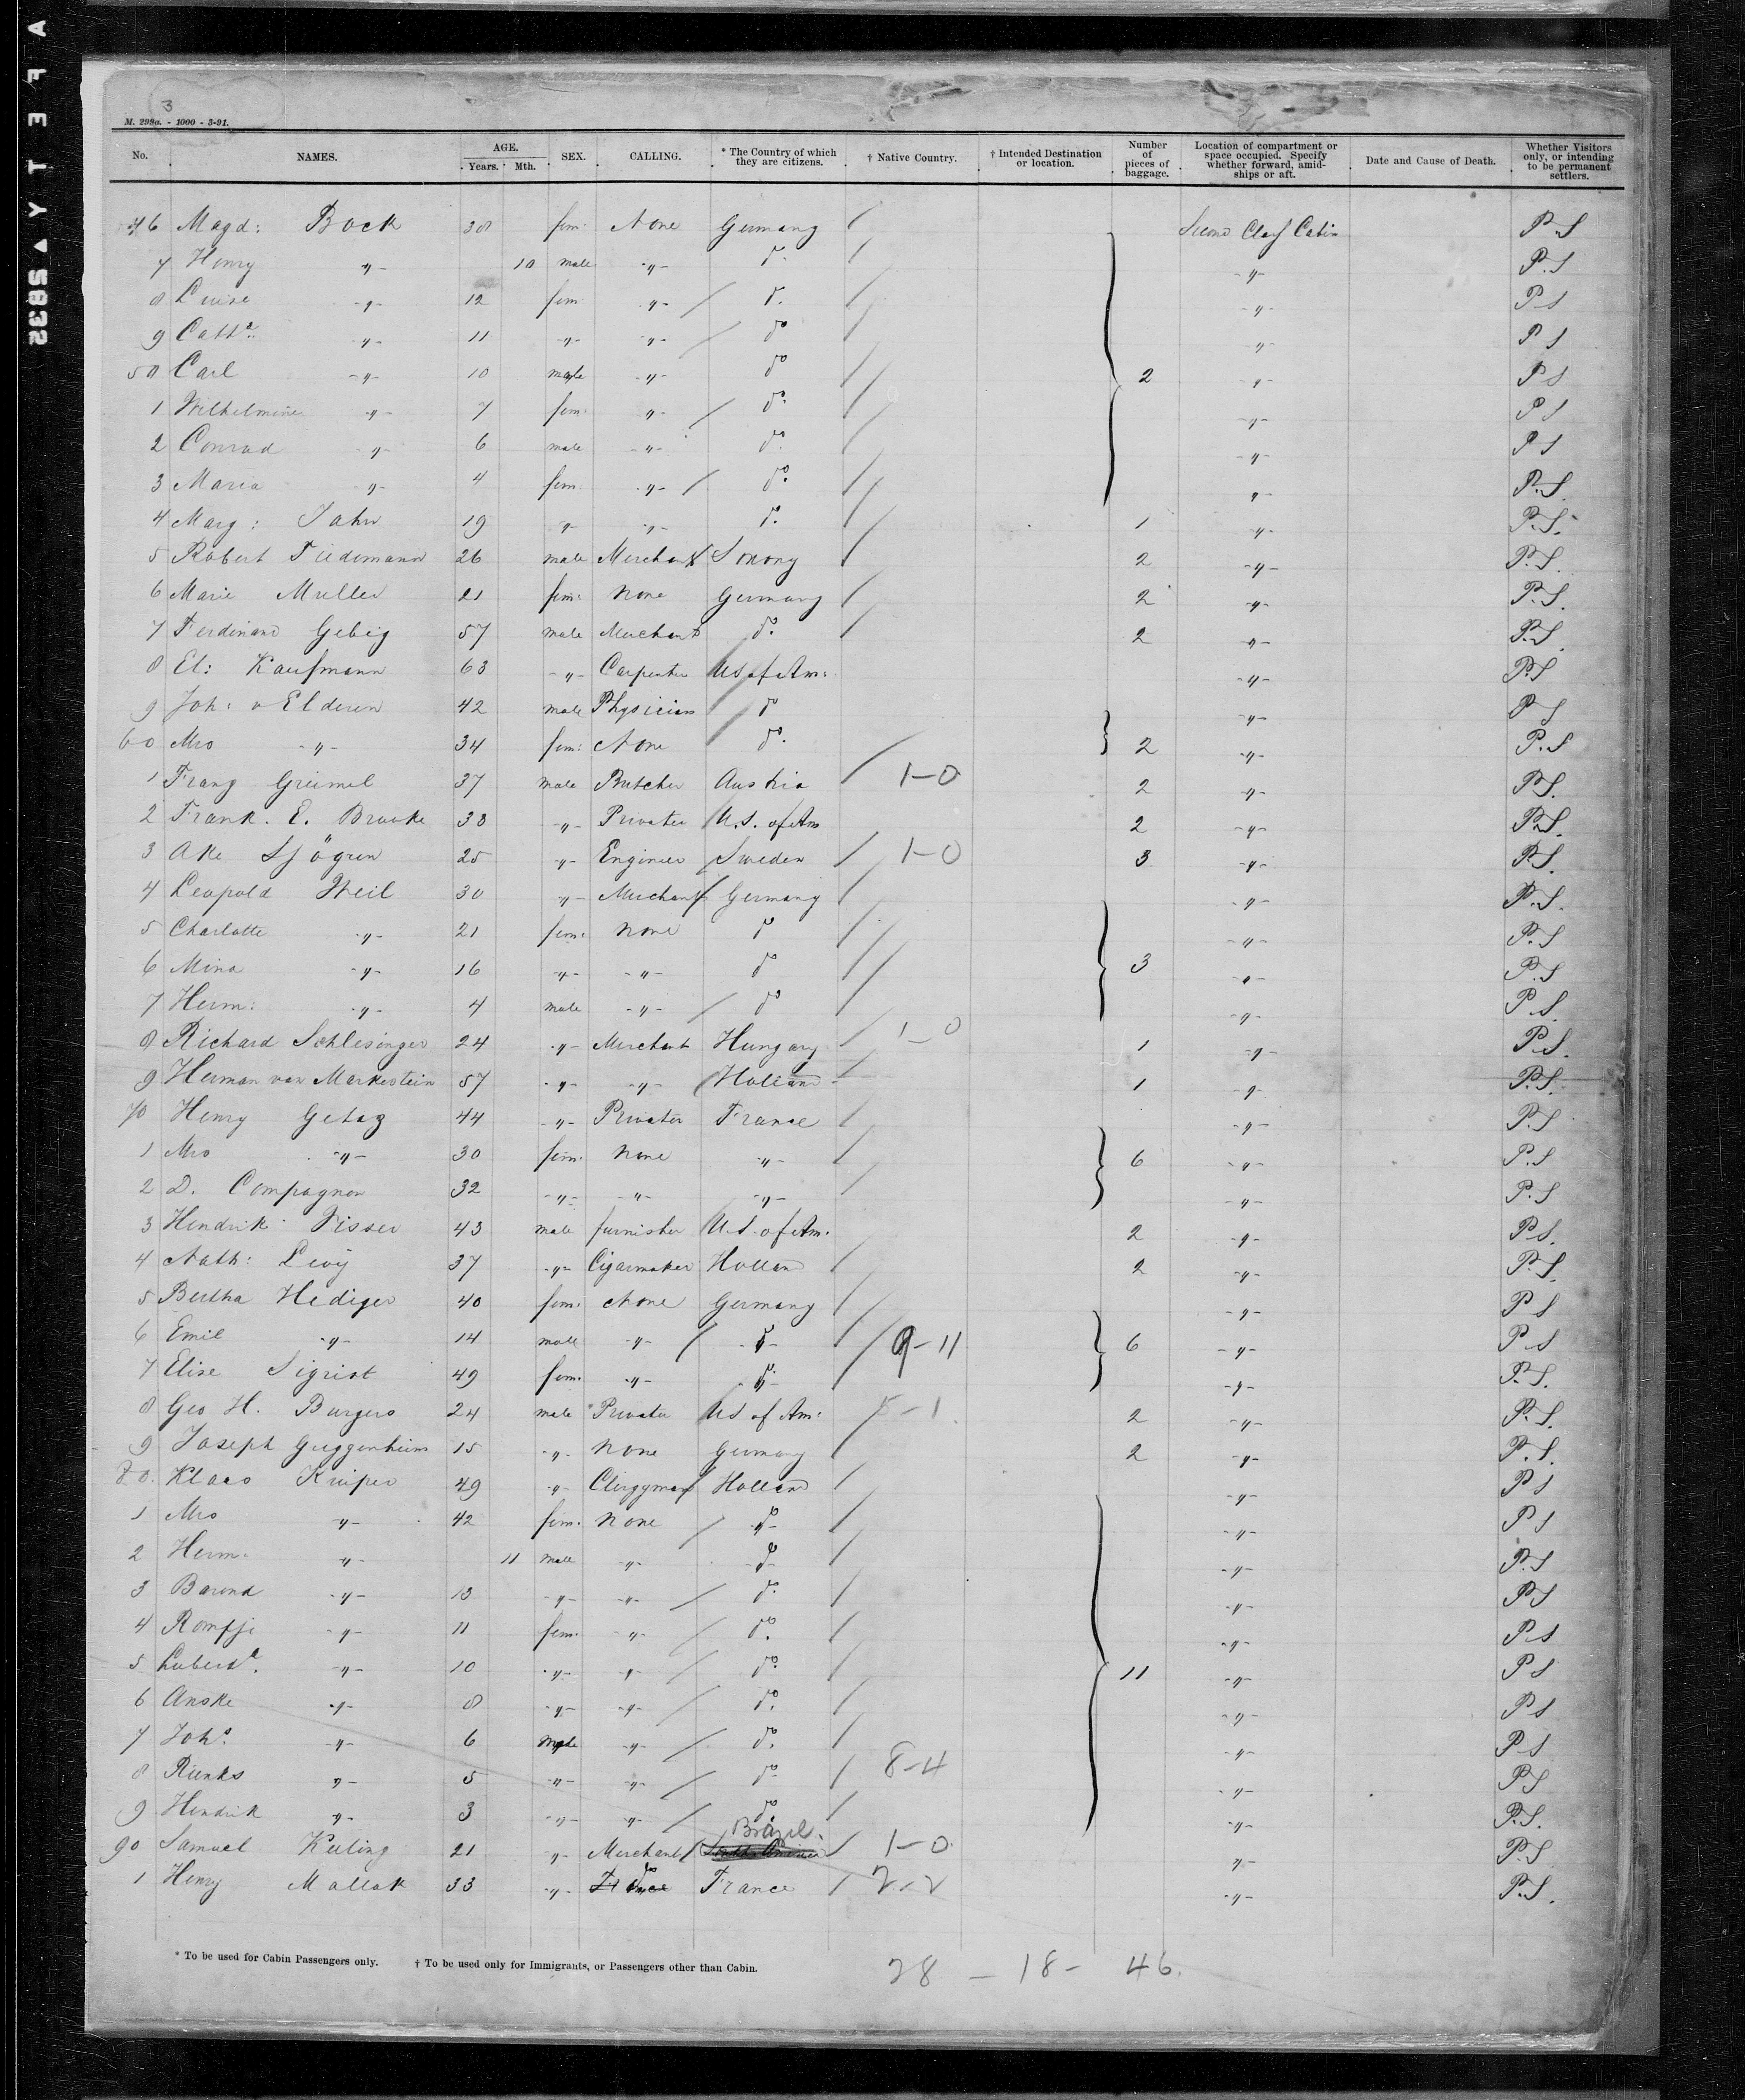 SAFETY
5832
3
M. 298a. - 1000 - 3-91.
No. NAMES. AGE. Years. Mth. SEX. CALLING. * The Country of which they are citizens. † Native Country. † Intended Destination or location. Number of pieces of baggage. Location of compartment or space occupied. Specify whether forward, amidships or aft. Date and Cause of Death. Whether Visitors only, or intending to be permanent settlers.
46 Magd: Bock 38 fem: None Germany Second Class Cabin P.S
7 Henry -"- 10 male -"- do -"- P.S
8 Luise -"- 12 fem -"- do -"- P S
9 Cathe -"- 11 -"- -"- do -"- P S
50 Carl -"- 10 male -"- do 2 -"- P S
1 Wilhelmine -"- 7 fem: -"- do -"- P S
2 Conrad -"- 6 male -"- do -"- P S
3 Maria -"- 4 fem. -"- do -"- P.S.
4 Marg: Jahn 19 -"- -"- do 1 -"- P.S.
5 Robert Tiedemann 26 male Merchant Saxony 2 -"- P.S.
6 Marie Muller 21 fem: None Germany 2 -"- P.S.
7 Ferdinand Gebig 57 male Merchant do 2 -"- P.S.
8 El: Kaufmann 63 -"- Carpenter US of Am: -"- P.S
9 Joh: v Elderen 42 male Physician do -"- P S
60 Mrs -"- 34 fem: None do. 2 -"- P.S
1 Franz Greimel 37 male Butcher Austria 1-0 2 -"- P.S.
2 Frank. E. Brooke 38 -"- Privater U.S. of Am 2 -"- P.S.
3 Ake Sjögren 25 -"- Engineer Sweden 1-0 3 -"- P.S.
4 Leopold Weil 30 -"- Merchant Germany -"- P.S.
5 Charlotte -"- 21 fem: None do -"- P.S
6 Mina -"- 16 -"- -"- do 3 -"- P.S
7 Herm: -"- 4 male -"- do -"- P.S.
8 Richard Schlesinger 24 -"- Merchant Hungary 1-0 1 -"- P.S.
9 Herman van Markestein 57 -"- -"- Holland 1 -"- P.S.
70 Henry Getaz 44 -"- Privater France -"- P.S
1 Mrs -"- 30 fem. None -"- 6 -"- P.S
2 D. Compagnon 32 -"- -"- -"- -"- P.S
3 Hendrik Visser 43 male furnisher U.S. of Am. 2 -"- P.S.
4 Nath: Levy 37 -"- Cigarmaker Holland 2 -"- P.S.
5 Bertha Hediger 40 fem. None Germany -"- P S
6 Emil -"- 14 male -"- do 9-11 6 -"- P S
7 Elise Sigrist 49 fem. -"- do -"- P.S.
8 Geo H. Burgers 24 male Privater US of Am: 2 -"- P.S.
9 Joseph Guggenheim 15 -"- None Germany 2 -"- P.S.
80. Klaas Kuiper 49 -"- Clergyman Holland -"- P S
1 Mrs -"- 42 fem. None do -"- P S
2 Herm. -"- 11 male -"- do -"- P.S
3 Barend -"- 13 -"- -"- do -"- P S
4 Rompje -"- 11 fem. -"- do. -"- P S
5 -"- 10 -"- -"- do. 11 -"- P S
6 Anske -"- 8 -"- -"- do. -"- P S
7 Johs -"- 6 male -"- do. -"- P S
8 -"- 5 -"- -"- do 8-4 -"- P S
9 Hendrik -"- 3 -"- -"- do -"- P.S.
90 Samuel Keeling 21 -"- Merchant South America Brazil. 1-0 -"- P.S
1 Henry Mallak 33 -"- do France 2-2 -"- P.S.
* To be used for Cabin Passengers only. † To be used only for Immigrants, or Passengers other than Cabin.
28 - 18 - 46.